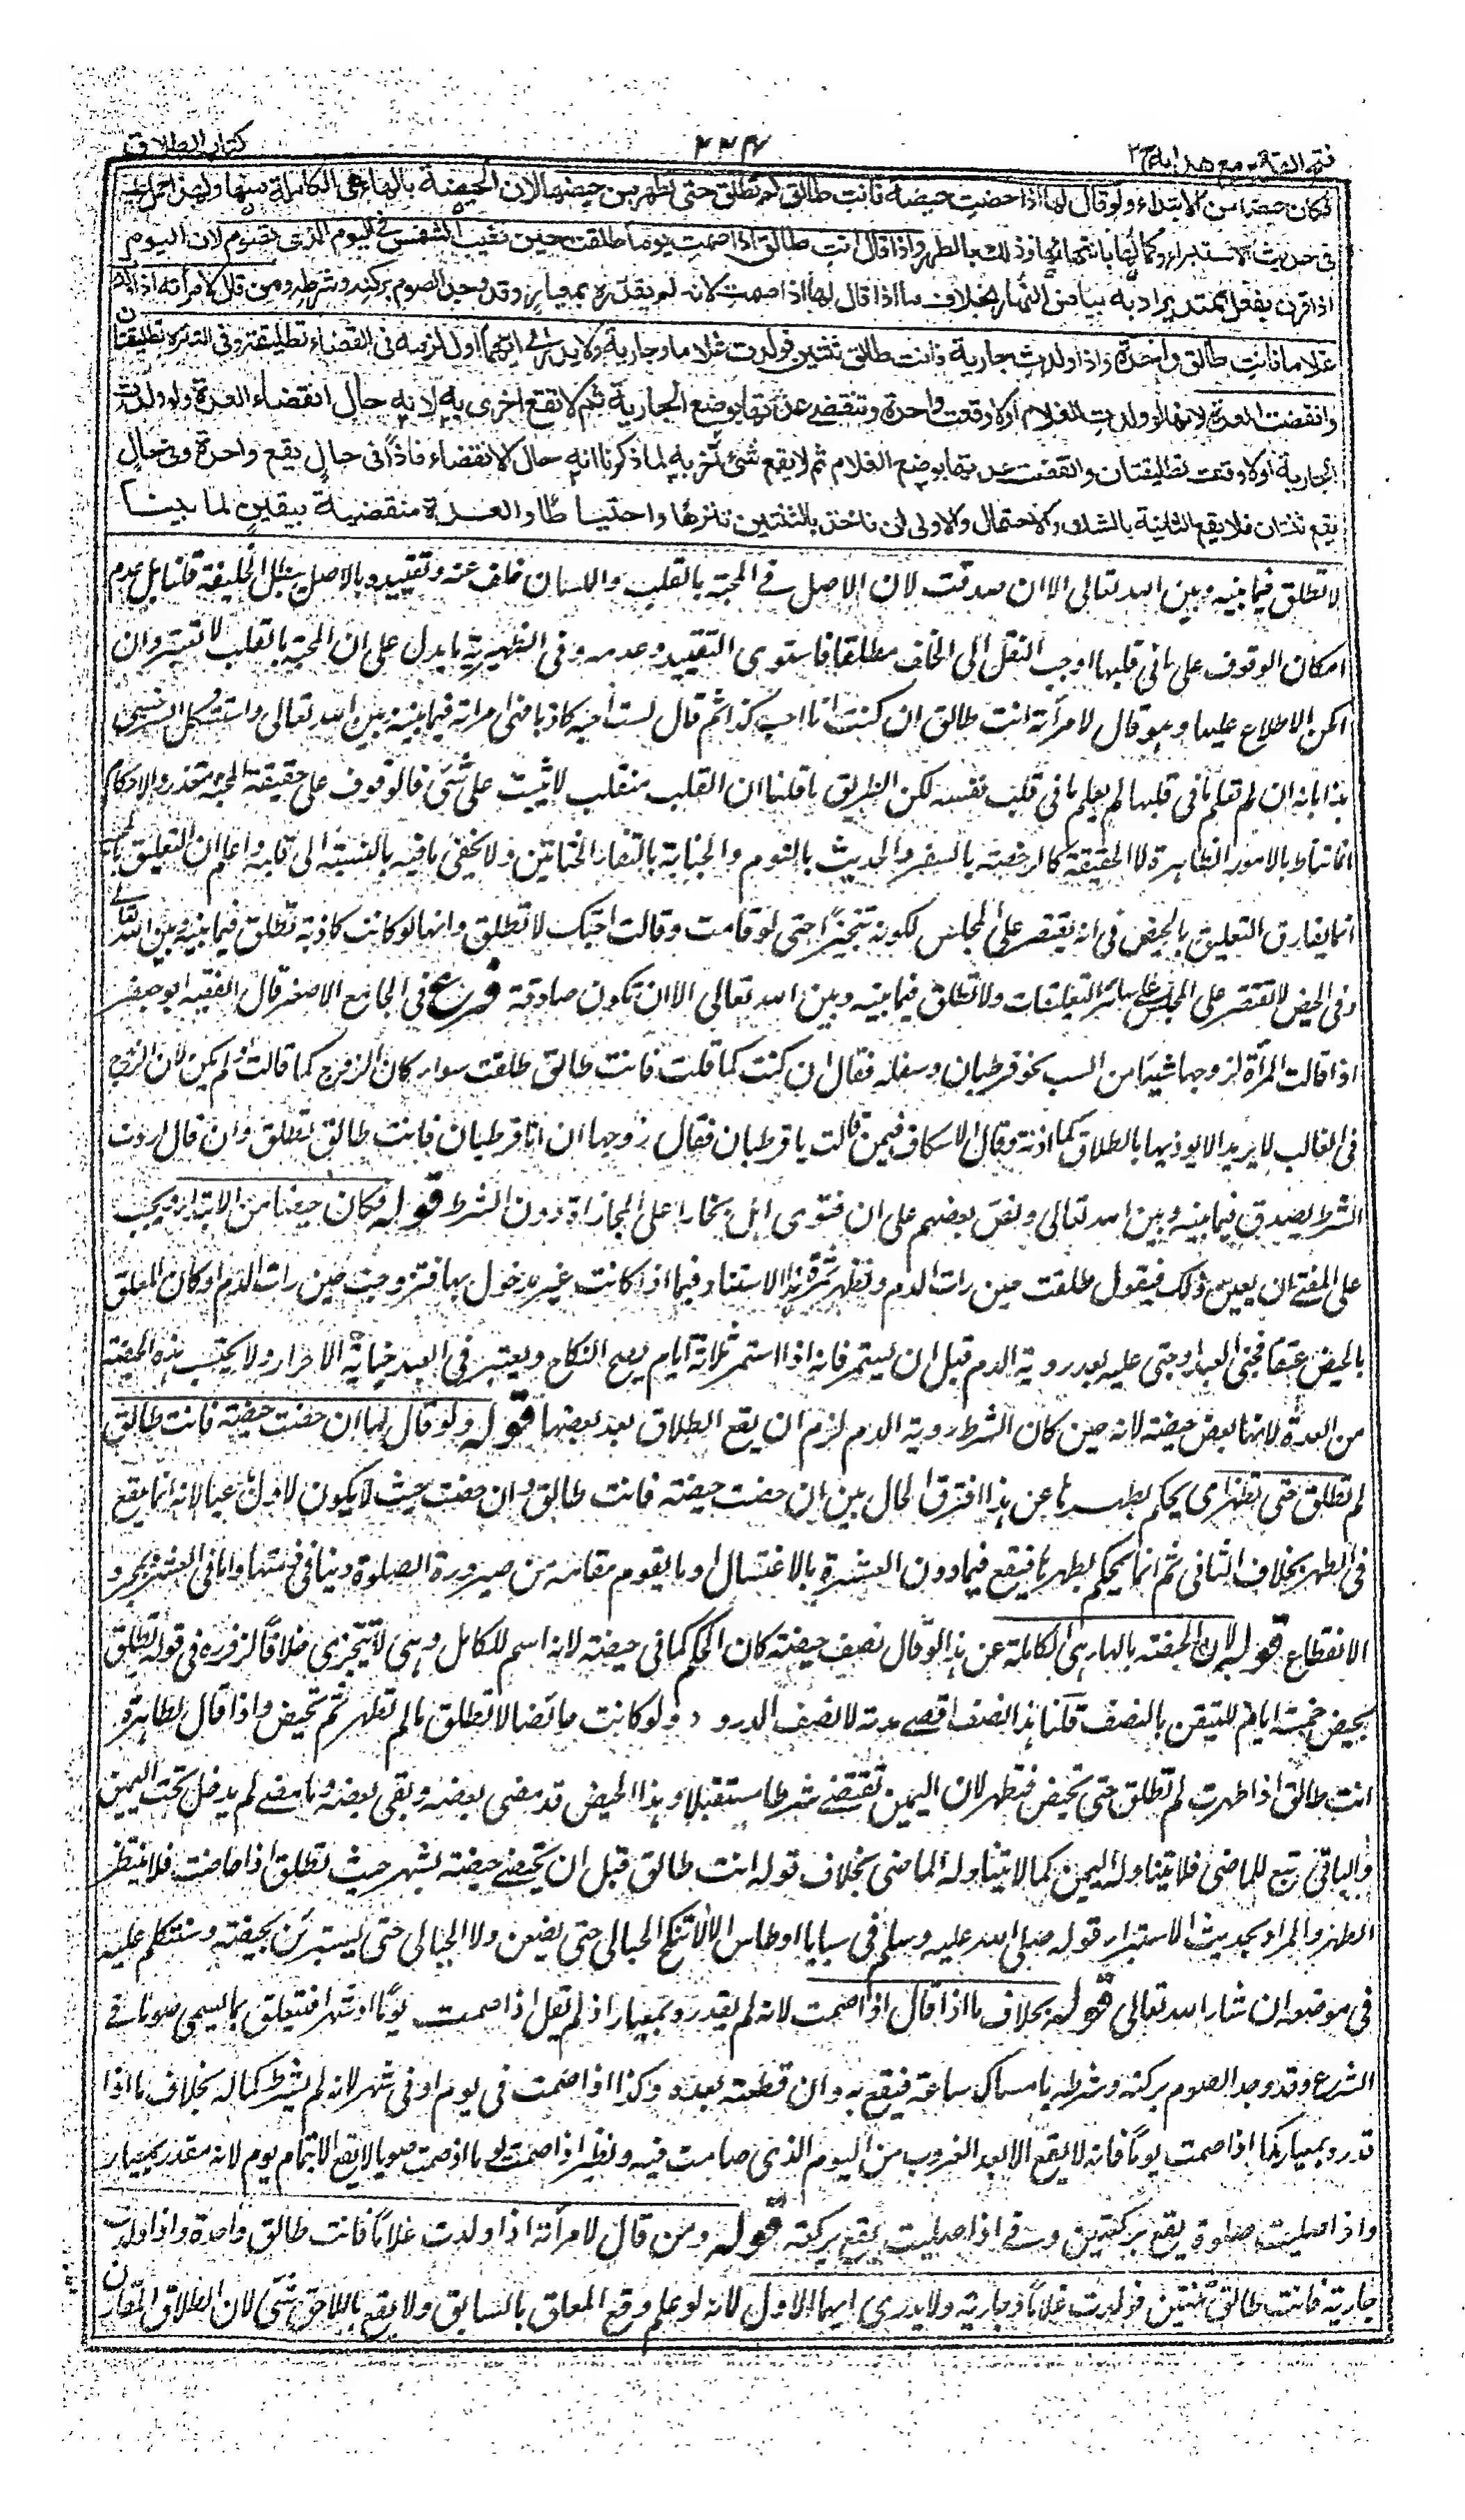 فتح القدير مع هدايه ج٢
٢٢٤
كتاب الطلاق
فكان حيضا من الابتداء ولو قال لها اذا حضت حيضة فانت طالق لم تطلق حتى تطهر من حيضها لان الحيضة بالهاء هى الكاملة منها ولهذا حمل عليه
فى حديث الاستبراء وكمالها بانتهائها وذلك بالطهر واذا قال انت طالق اذا صمت يوما طلقت حين تغيب الشمس فى اليوم الذى تصوم لان اليوم
اذا قرن بفعل ممتد يراد به بياض النهار بخلاف ما اذا قال لها اذا صمت لانه لم يقدره بمعيار وقد وجد الصوم بركنه وشرطه ومن قال لامرأته اذا ولدت
غلاما فانت طالق واحدة واذا ولدت جارية فانت طالق ثنتين فولدت غلاما وجارية ولا يدرى ايهما اول لزمه فى القضاء تطليقة وفى التنزه تطليقتان
وانقضت العدة لانها لو ولدت الغلام اولا وقعت واحدة وتنقضى عدتها بوضع الجارية ثم لا تقع اخرى به لانه حال انقضاء العدة ولو ولدت
الجارية اولا وقعت تطليقتان وانقضت عدتها بوضع الغلام ثم لا يقع شئ آخر به لما ذكرنا انه حال الانقضاء فاذا فى حال يقع واحدة وفى حال
يقع ثنتان فلا يقع الثانية بالشك والاحتمال والاولى ان ناخذ بالثنتين تنزها واحتياطا والعدة منقضية بيقين لما بينا
لا تطلق فيما بينه وبين الله تعالى الا ان صدقت لان الاصل فى المحبة بالقلب واللسان خلف عنه وتقييده بالاصل يبطل الخليفة قلنا بل عدم
امكان الوقوف على ما فى قلبها اوجب النقل الى الخلف مطلقا فاستوى التقييد وعدمه وفى الظهيرية ما يدل على ان المحبة بالقلب لا تعتبر وان
امكن الاطلاع عليها وهو قال لامرأته انت طالق ان كنت انا احب كذا ثم قال لست احبه كاذبا فهى امراته فيما بينه وبين الله تعالى واستشكل السرخسى
هذا بانه ان لم تعلم ما فى قلبها لم يعلم ما فى قلب نفسه لكن الطريق ما قلنا ان القلب منقلب لا يثبت على شئ فالوقوف على حقيقة المحبة متعذر والاحكام
انما تناط بالامور الظاهرة لا الحقيقة كالرخصة بالسفر والحديث بالنوم والجنابة بالتقاء الختانين ولا يخفى ما فيه بالنسبة الى قلبه واعلم ان التعليق بالمحبة
انما يفارق التعليق بالحيض فى انه يقتصر على المجلس لكونه تخييرا حتى لو قامت وقالت احبك لا تطلق وانها لو كانت كاذبة تطلق فيما بينه وبين الله تعالى
وفى الحيض لا تقتصر على المجلس كسائر التعليقات ولا تطلق فيما بينه وبين الله تعالى الا ان تكون صادقة فرع فى الجامع الاصغر قال الفقيه ابو جعفر
اذا قالت المرأة لزوجها شيئا من السب نحو قرطبان وسفله فقال ان كنت كما قلت فانت طالق طلقت سواء كان الزوج كما قالت او لم يكن لان الزوج
فى الغالب لا يريد الا ايذيها بالطلاق كما اذته وقال الاسكاف فيمن قالت يا قرطبان فقال زوجها ان انا قرطبان فانت طالق تطلق وان قال اردت
الشرط يصدق فيما بينه وبين الله تعالى ونص بعضهم على ان فتوى اهل بخارا على المجازاة دون الشرط قوله وكان حيضا من الابتداء يجب
على المفتى ان يعين ذلك فيقول طلقت حين رات الدم وتظهر ثمرة هذا الاستناد فيما اذا كانت غير مدخول بها فتزوجت حين رات الدم او كان المعلق
بالحيض عتقا فجنى العبد او جنى عليه بعد روية الدم قبل ان يستمر فانه اذا استمر ثلاثة ايام يصح النكاح ويعتبر فى العبد جناية الاحرار ولا يحتسب هذه الحيضة
من العدة لانها بعض حيضة لانه حين كان الشرط روية الدم لزم ان يقع الطلاق بعد بعضها قوله ولو قال لها ان حضت حيضة فانت طالق
لم تطلق حتى تطهر اى يحكم بطهرها عن هذا افترق الحال بين ان حضت حيضة فانت طالق وان حضت حيث لا يكون الاول بدعيا لانه انما يقع
فى الطهر بخلاف الثانى ثم انما يحكم بطهرها فيقع فيما دون العشرة بالاغتسال او ما يقوم مقامه من صيرورة الصلوة دينا فى ذمتها واما فى العشر بمجرد
الانقطاع قوله لان الحيضة بالهاء هى الكاملة عن هذا لو قال نصف حيضة كان الحكم كما فى حيضة لانه اسم للكامل وهى لا تتجزى خلافا لزفر فى قوله تطلق
بحيض خمسة ايام للتيقن بالنصف قلنا هذا نصف اقصى مدته لا نصف الدرور ولو كانت حائضا لا تطلق ما لم تطهر ثم تحيض واذا قال لطاهرة
انت طالق اذا طهرت لم تطلق حتى تحيض فتطهر لان اليمين تقتضى شرطا مستقبلا وهذا الحيض قد مضى بعضه وبقى بعضه وما مضى لم يدخل تحت اليمين
والباقى تبع للماضى فلا يتناوله اليمين كما لا يتناوله الماضى بخلاف قوله انت طالق قبل ان تحيضى حيضة بشهر حيث تطلق اذا حاضت فلا ينتظر
الطهر والمراد بحديث الاستبراء قوله صلى الله عليه وسلم فى سبايا اوطاس الا لا تنكح الحبالى حتى يضعن ولا الحيالى حتى يستبرئن بحيضة وسنتكلم عليه
فى موضعه ان شاء الله تعالى قوله بخلاف ما اذا قال اذا صمت لانه لم يقدره بمعيار اذ لم يقل اذا صمت يوما او شهرا فتتعلق بما يسمى صوما فى
الشرع وقد وجد الصوم بركنه وشرطه بامساك ساعة فيقع به وان قطعته بعده وكذا اذا صمت فى يوم او فى شهر لانه لم يشترط كماله بخلاف ما اذا
قدره بمعيار كما اذا صمت يوما فانه لا يقع الا بعد الغروب من اليوم الذى صامت فيه ونظير اذا صمت يوما اذا صمت صوما لا يقع الا بتمام يوم لانه مقدر بمعيار
واذا صليت صلوة يقع بركعتين وفى اذا صليت يقع بركعة قوله ومن قال لامرأته اذا ولدت غلاما فانت طالق واحدة واذا ولدت
جارية فانت طالق ثنتين فولدت غلاما وجارية ولا يدرى ايهما الاول لانه لو علم وقع المعلق بالسابق ولا يقع باللاحق شئ لان الطلاق المقارن